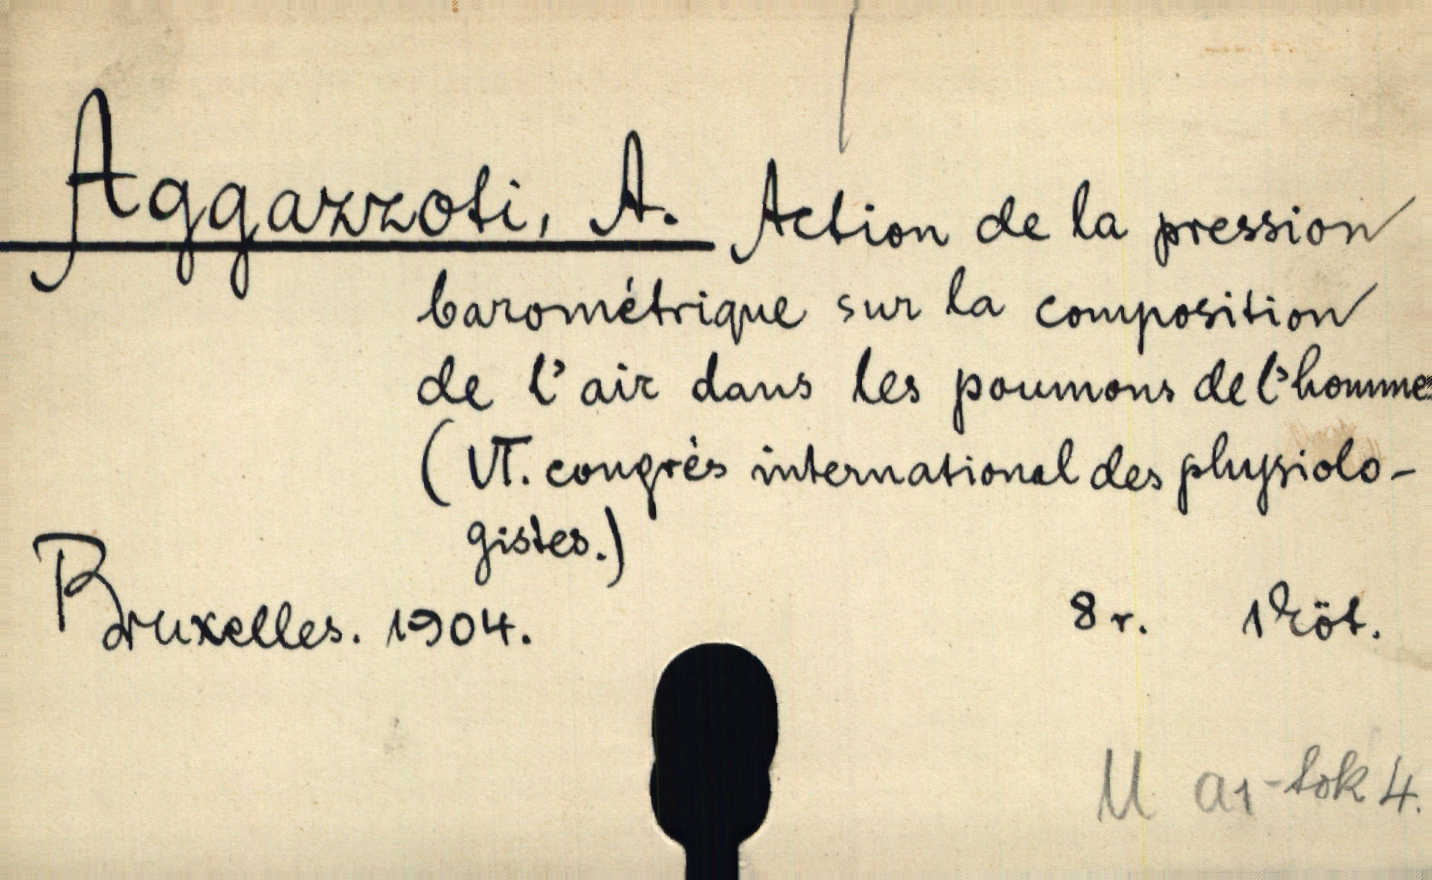 Aggazzoti, A. Action de la pression
barométrique sur la composition
de l'air dans les poumons de l'homme
(VI. congrès international des physiolo-
gistes.)
Bruxelles. 1904. 8r. 1 köt.
M a1-tok 4.